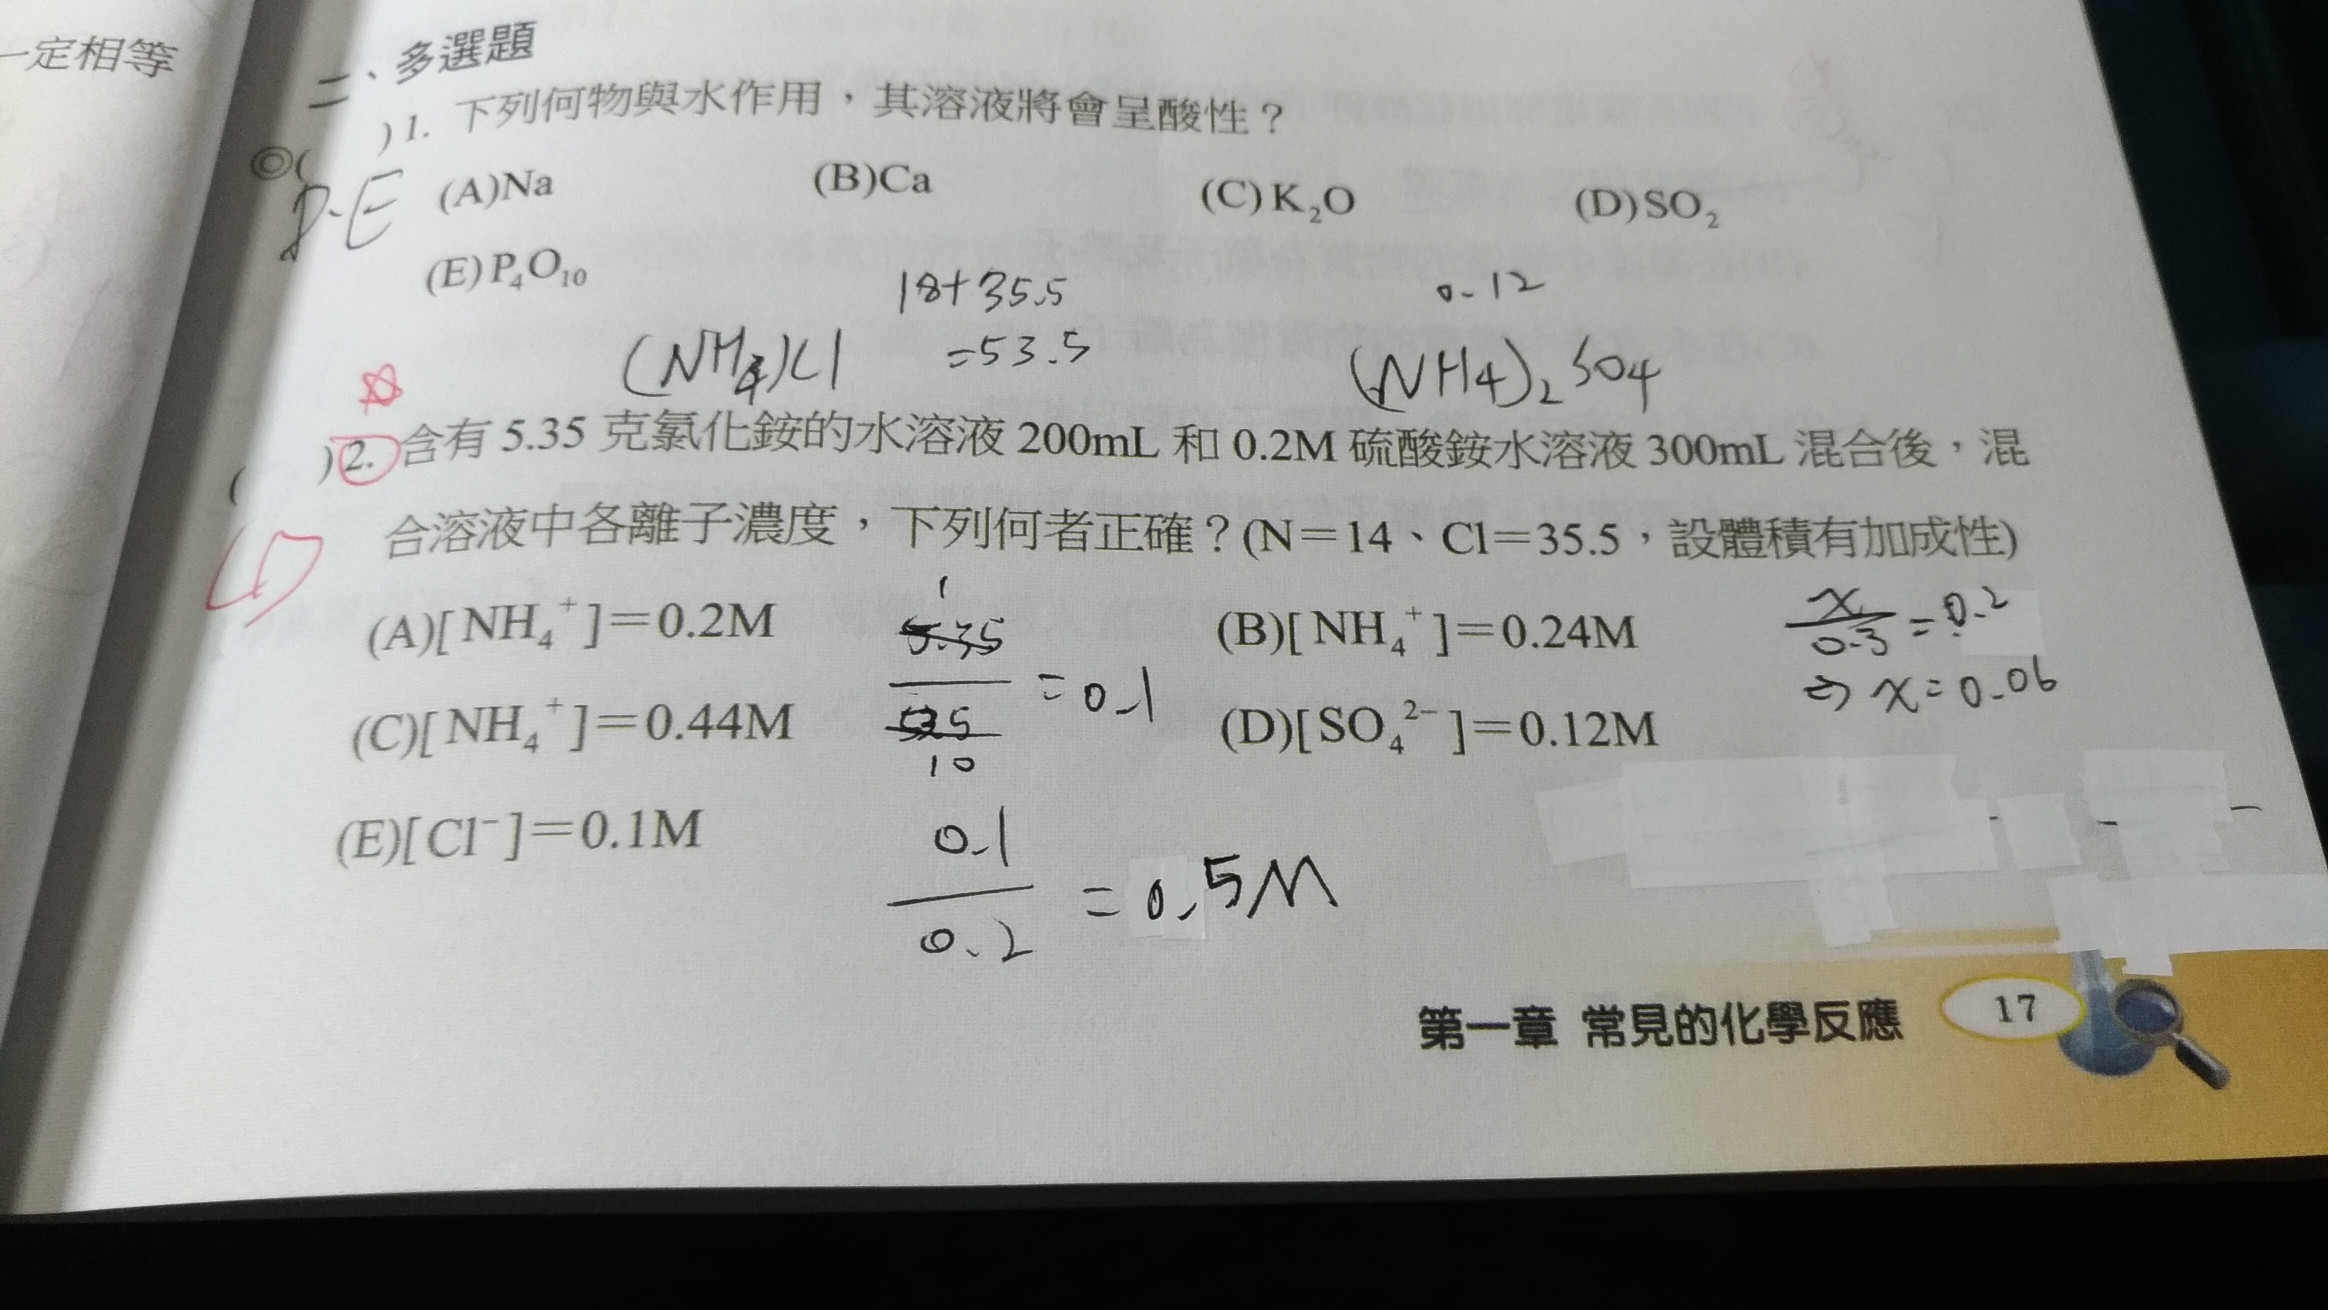 一定相等
二、多選題
◎( )1. 下列何物與水作用，其溶液將會呈酸性？
D.E
(A)Na (B)Ca (C)K₂O (D)SO₂
(E)P₄O₁₀
18+35.5
=53.5
0.12
(NH₄)Cl
(NH4)₂SO4
( )2. 含有 5.35 克氯化銨的水溶液 200mL 和 0.2M 硫酸銨水溶液 300mL 混合後，混
合溶液中各離子濃度，下列何者正確？(N＝14、Cl＝35.5，設體積有加成性)
(A)[NH₄⁺]＝0.2M (B)[NH₄⁺]＝0.24M
(C)[NH₄⁺]＝0.44M (D)[SO₄²⁻]＝0.12M
(E)[Cl⁻]＝0.1M
1
5.35
53.5
10
=0.1
x/0.3=0.2
⇒ x=0.06
0.1/0.2 = 0.5M
第一章 常見的化學反應 17